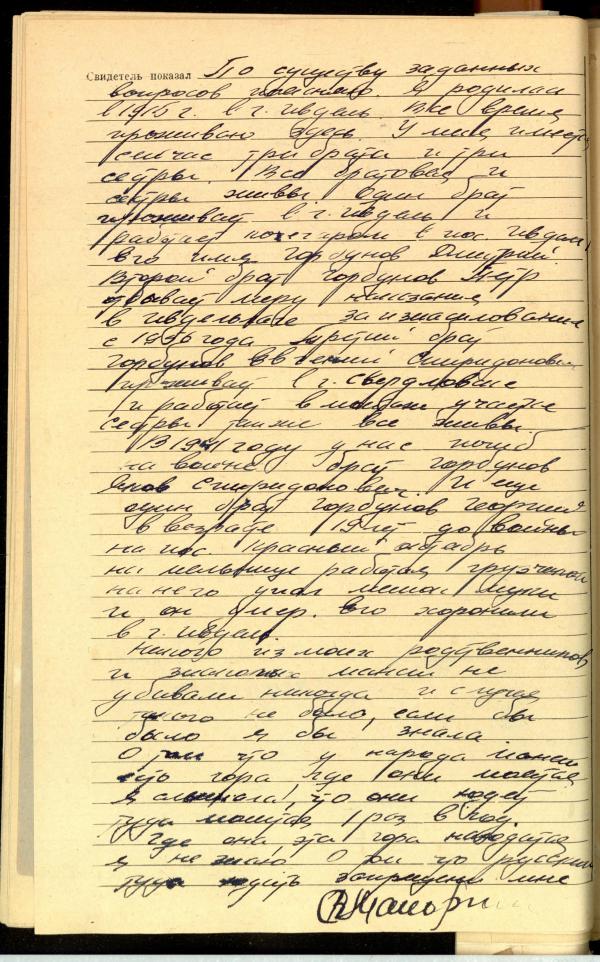 Свидетель показал По существу заданных
вопросов поясняю. Я родилась
в 1915 г. в г. Ивдель. Все время
проживаю здесь. У меня имеется
сейчас три брата и три
сестры. Все братовья и
сестры живы. Один брат
проживает в г. Ивдель и
работает кочегаром в пос. Ивдель
его имя Горбунов Дмитрий.
Второй брат Горбунов Петр
отбывает меру наказания
в Ивдельлаге за изнасилование
с 1956 года Третий брат
Горбунов Евгений Спиридонович
проживает в г. Свердловске
и работает в участке
сестры также все живы.
В 1941 году у нас погиб
на войне брат Горбунов
Яков Спиридонович. И еще
один брат Горбунов Георгий
в возрасте 19 лет до войны
на пос. Красный октябрь
на мельнице работал грузчиком
на него упал мешок муки
и он умер. Его хоронили
в г. Ивдель.
Никого из моих родственников
и знакомых манси не
убивали никогда и случая
такого не было, если бы
было я бы знала
О том что у народа манси
есть гора где они молятся
я слышала, что они ходят
туда молиться 1 раз в год.
Где она, эта гора находится
я не знаю. О том что русским
туда ходить запрещено мне